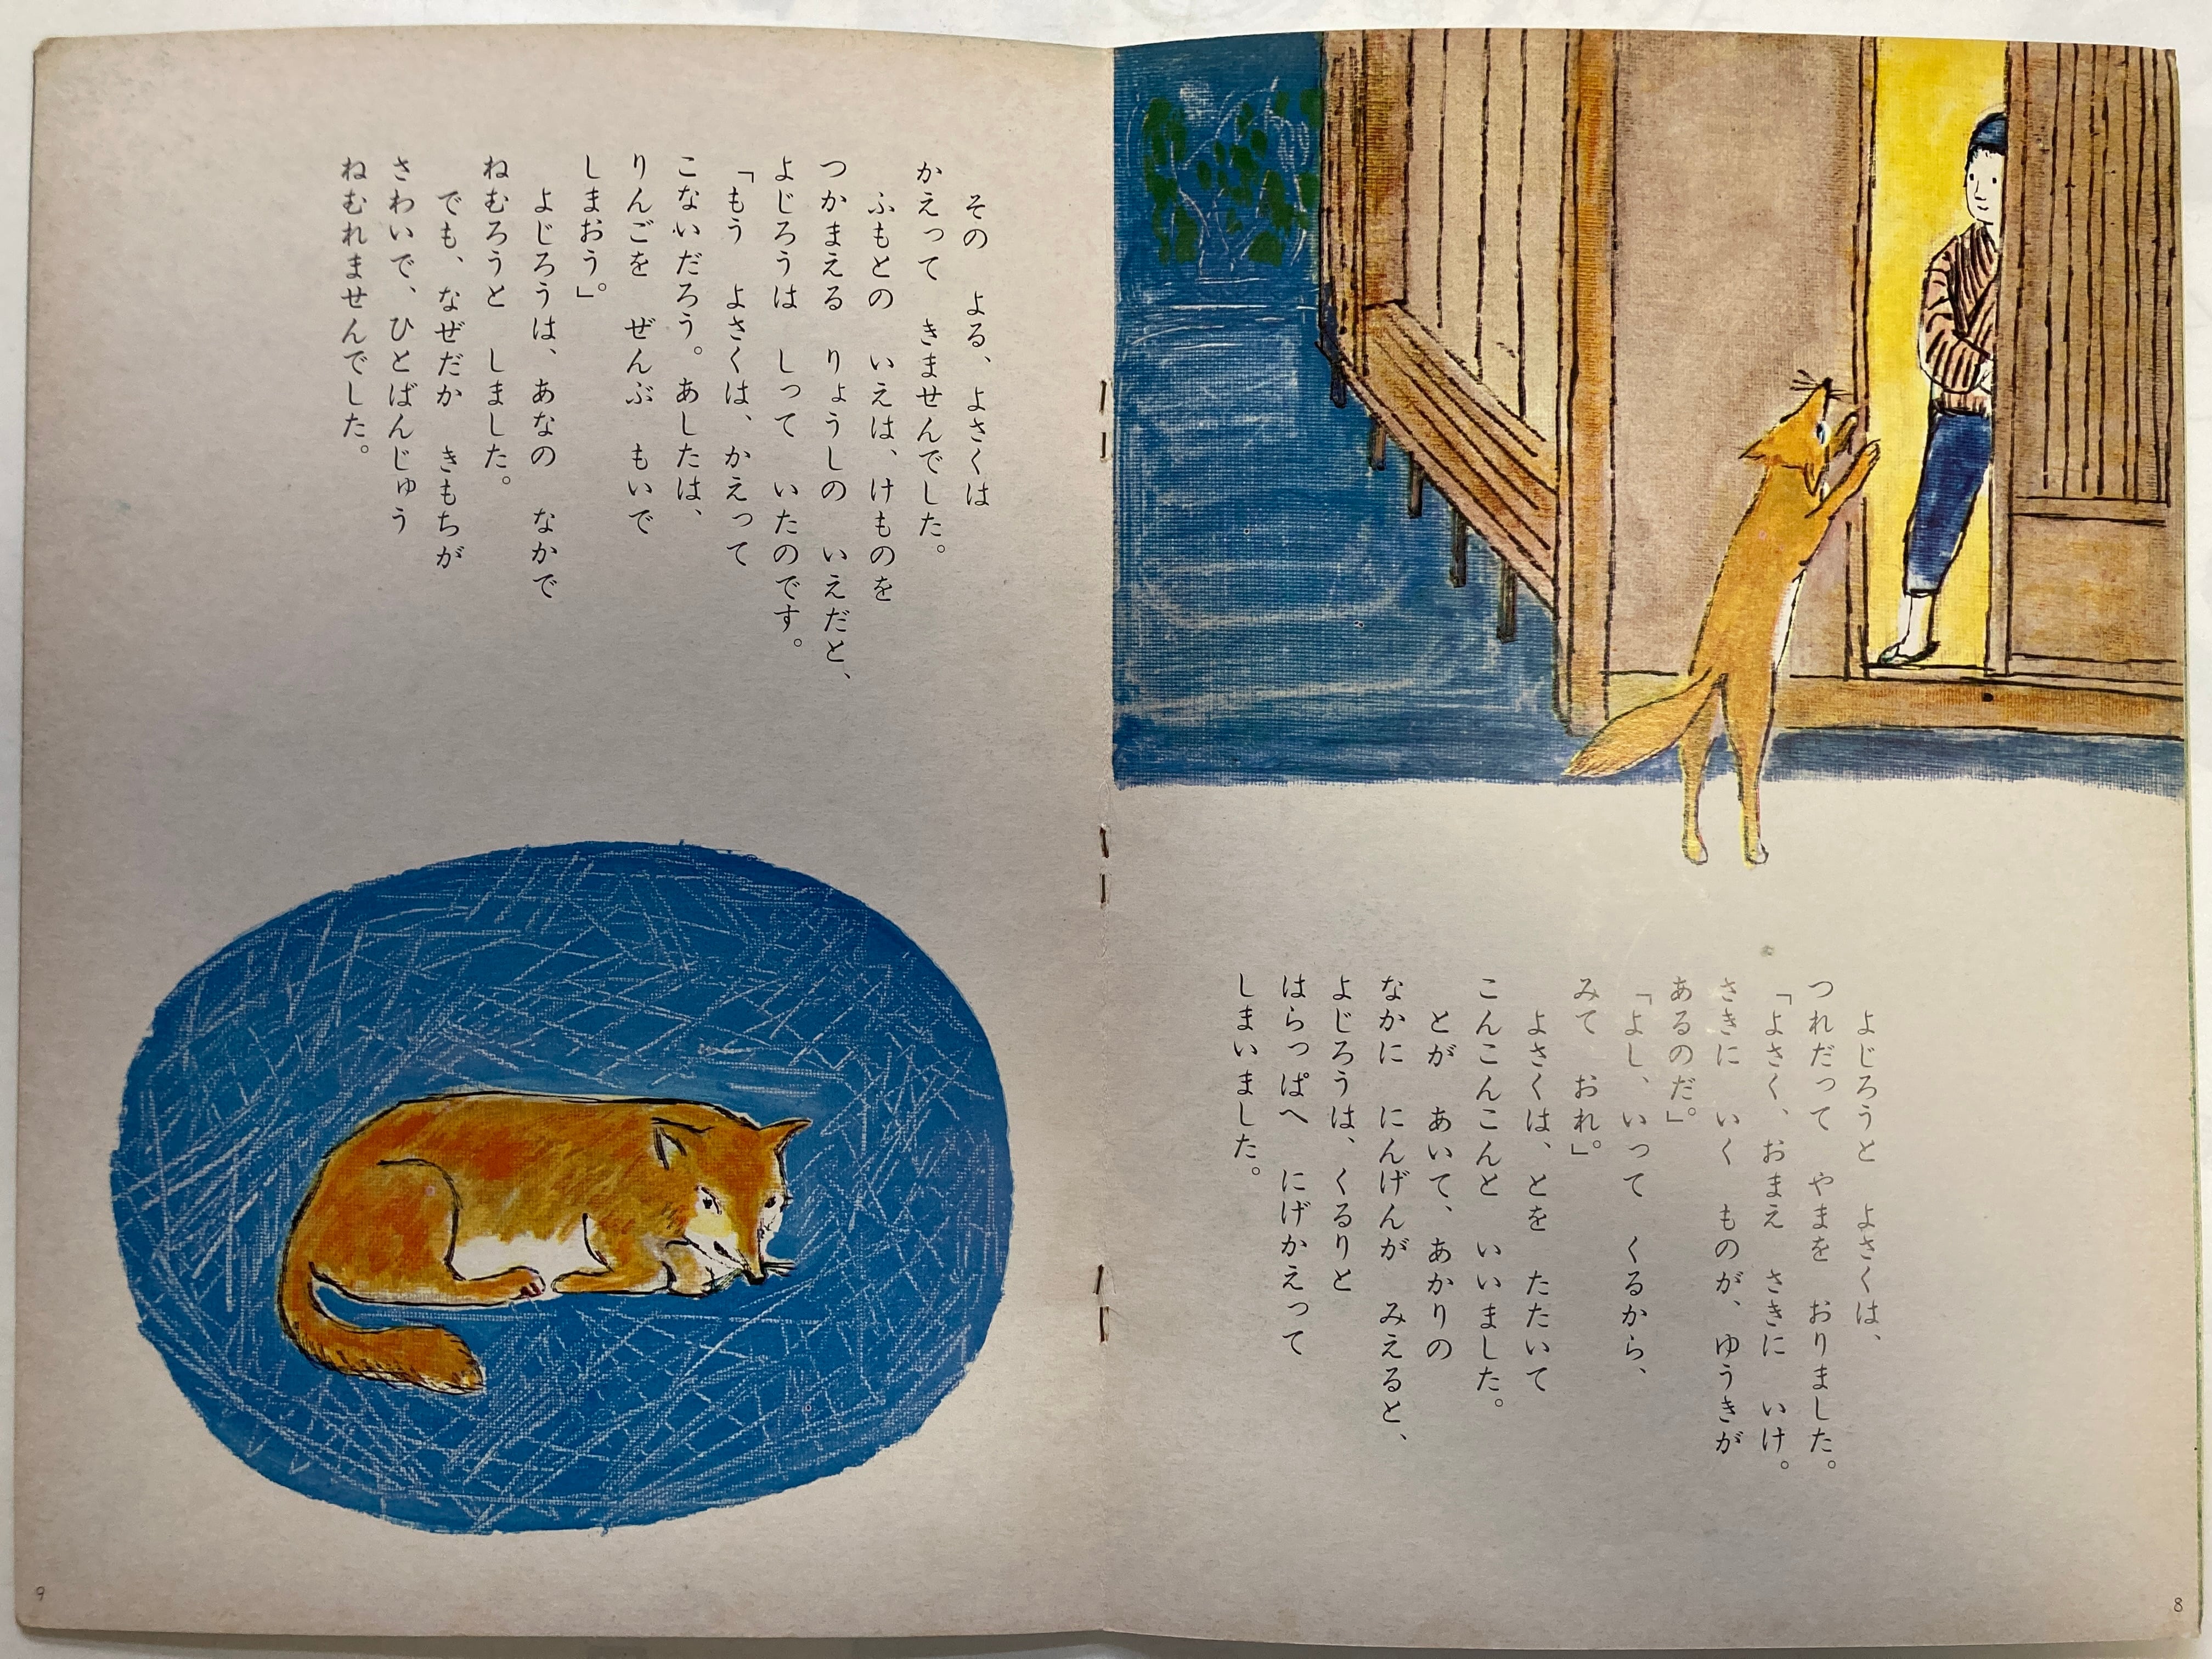 よじろうと　よさくは、
つれだって　やまを　おりました。
「よさく、おまえ　さきに　いけ。
さきに　いく　ものが、ゆうきが
あるのだ。」
「よし、いって　くるから、
みて　おれ。」
よさくは、とを　たたいて
こんこんこんと　いいました。
とが　あいて、あかりの
なかに　にんげんが　みえると、
よじろうは、くるりと
はらっぱへ　にげかえって
しまいました。
8
その　よる、よさくは
かえって　きませんでした。
ふもとの　いえは、けものを
つかまえる　りょうしの　いえだと、
よじろうは　しって　いたのです。
「もう　よさくは、かえって
こないだろう。あしたは、
りんごを　ぜんぶ　もいで
しまおう。」
よじろうは、あなの　なかで
ねむろうと　しました。
でも、なぜだか　きもちが
さわいで、ひとばんじゅう
ねむれませんでした。
9